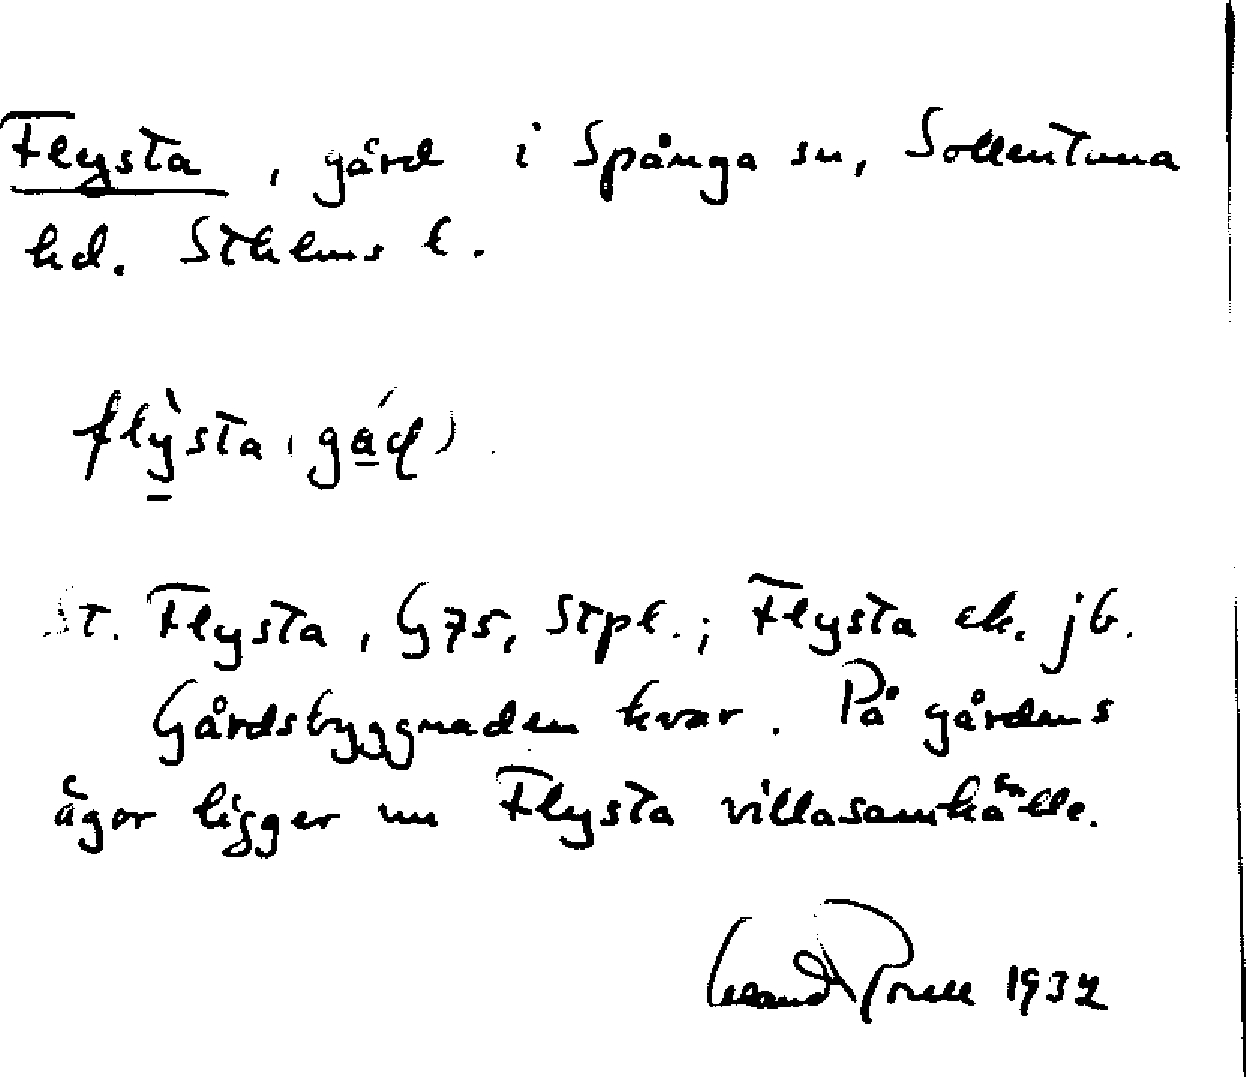 Flysta, gård i Spånga sn, Sollentuna
hd. Sthlms l.
flỳsta (gǻḍ)
St. Flysta, G 75, Stpl.; Flysta ek. jb.
Gårdsbyggnaden kvar. På gårdens
ägor ligger nu Flysta villasamhälle.
1932